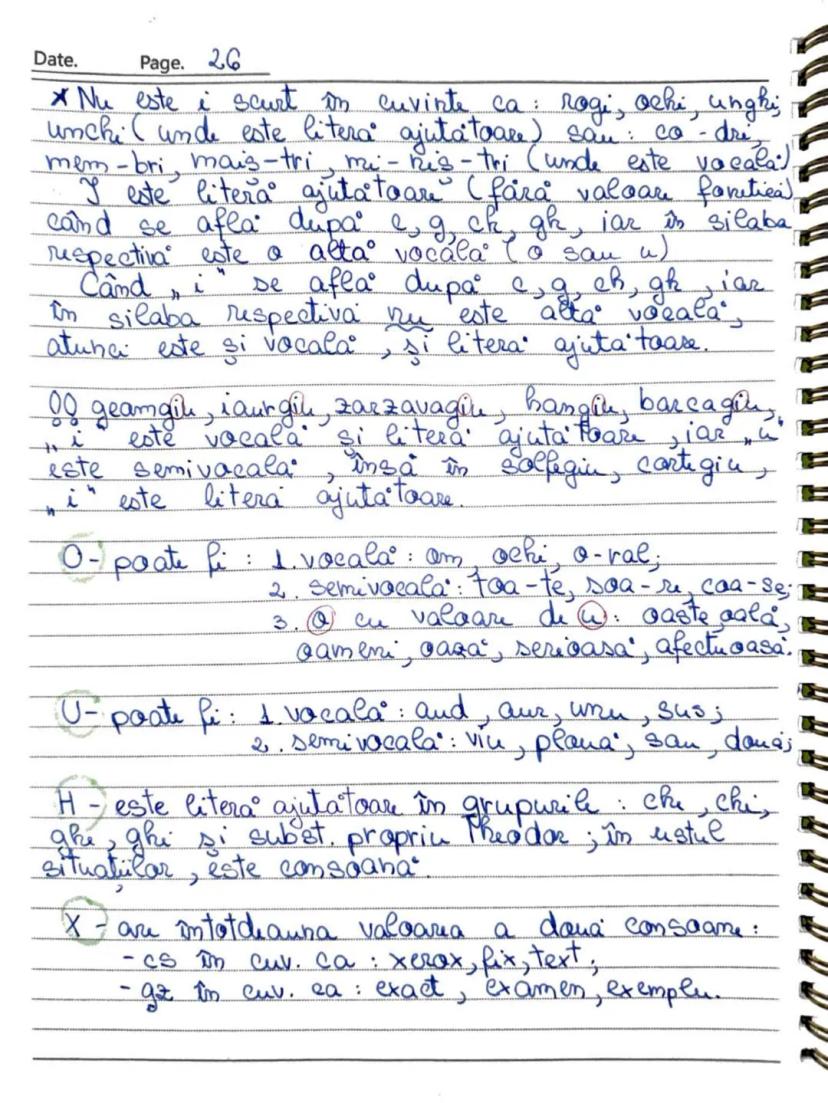 Date. Page. 26
* Nu este i scurt în cuvinte ca : rogi, ochi, unghi,
unchi ( unde este literă ajutătoare ) sau : co - dri,
mem - bri, maiș - tri, mi - niș - tri ( unde este vocală )
I este literă ajutătoare ( fără valoare fonetică )
când se află după c, g, ch, gh, iar în silaba
respectivă este o altă vocală ( o sau u )
Când „ i " se află după c, g, ch, gh , iar
în silaba respectivă nu este altă vocală,
atunci este și vocală , și literă ajutătoare.
!! geamgiu, iaurgiu, zarzavagiu, hangiu, barcagiu,
„ i " este vocală și literă ajutătoare , iar „u"
este semivocală , însă în solfegiu, cortegiu,
„ i " este literă ajutătoare.
O - poate fi : 1. vocală : om, ochi, o-ral;
2. semivocală : toa-te, soa-re, coa-se;
3. o cu valoare de u : oaste, oală,
oameni, oază, serioasă, afectuoasă.
U - poate fi : 1. vocală : aud, aur, unu, sus;
2. semivocală : viu, plouă, sau, două;
H - este literă ajutătoare în grupurile : che, chi,
ghe, ghi și subst. propriu Theodor ; în restul
situațiilor, este consoană.
X - are întotdeauna valoarea a două consoane :
- cs în cuv. ca : xerox, fix, text;
- gz în cuv. ca : exact, examen, exemplu.